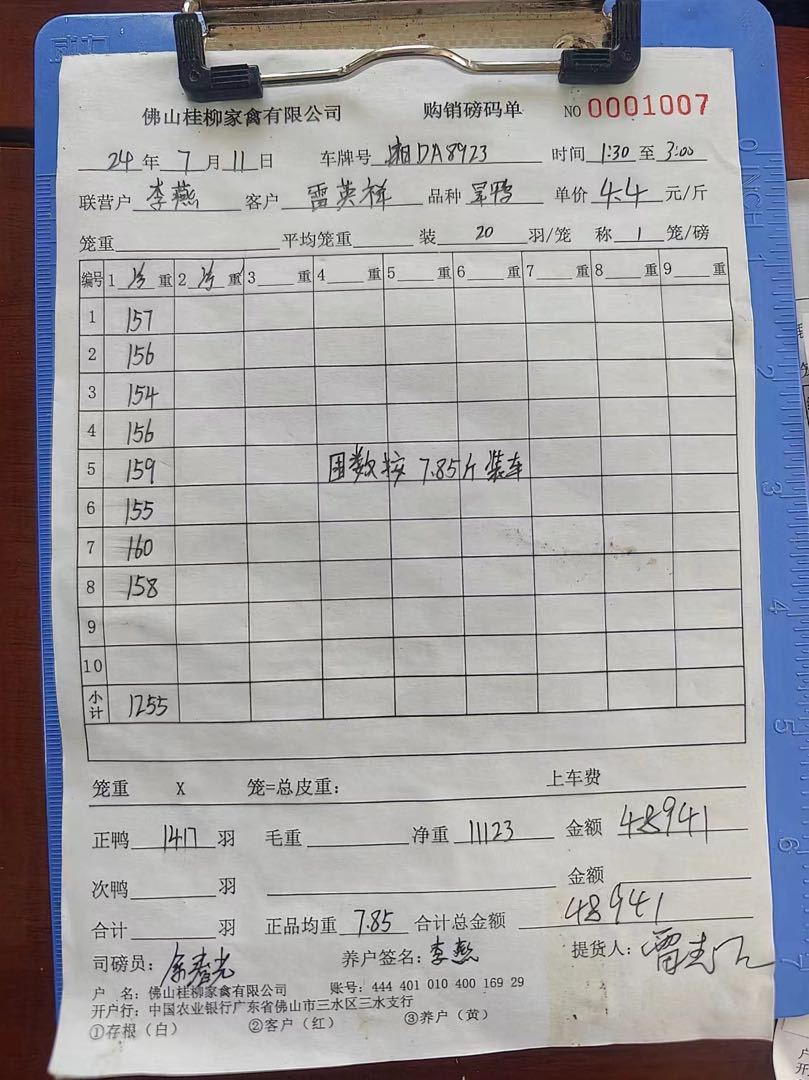 佛山桂柳家禽有限公司 购销磅码单 NO 0001007
24 年 7 月 11 日 车牌号 湘DA8923 时间 1:30 至 3:00
联营户 李燕 客户 雷英祥 品种 鸭 单价 4.4 元/斤
笼重 平均笼重 装 20 羽/笼 称 1 笼/磅
编号 1 净 重 2 净 重 3 重 4 重 5 重 6 重 7 重 8 重 9 重
1 157
2 156
3 154
4 156
5 159 数按 7.85斤装车
6 155
7 160
8 158
9
10
小计 1255
笼重 X 笼=总皮重: 上车费
正鸭 1417 羽 毛重 净重 11123 金额 48941
次鸭 羽 金额
合计 羽 正品均重 7.85 合计总金额 48941
司磅员: 养户签名: 李燕 提货人: 雷
户 名: 佛山桂柳家禽有限公司 账号: 444 401 010 400 169 29
开户行: 中国农业银行广东省佛山市三水区三水支行
①存根(白) ②客户(红) ③养户(黄)